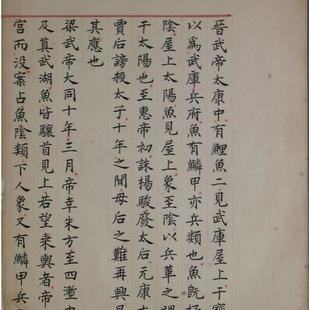 晉武帝太康中有鯉魚二見武庫屋上干寶
以為武庫兵府魚有鱗甲亦兵類也魚既極
陰屋上太陽魚見屋上象至陰以兵革之禍
干太陽也至惠帝初誅楊駿廢太后元康末
賈后謗殺太子十年之間母后之難再興是
其應也
梁武帝大同十年三月帝幸朱方至四壍中
及真武湖魚皆驤首見上若望乘輿者帝
宮而没案占魚陰類下人象又有鱗甲兵